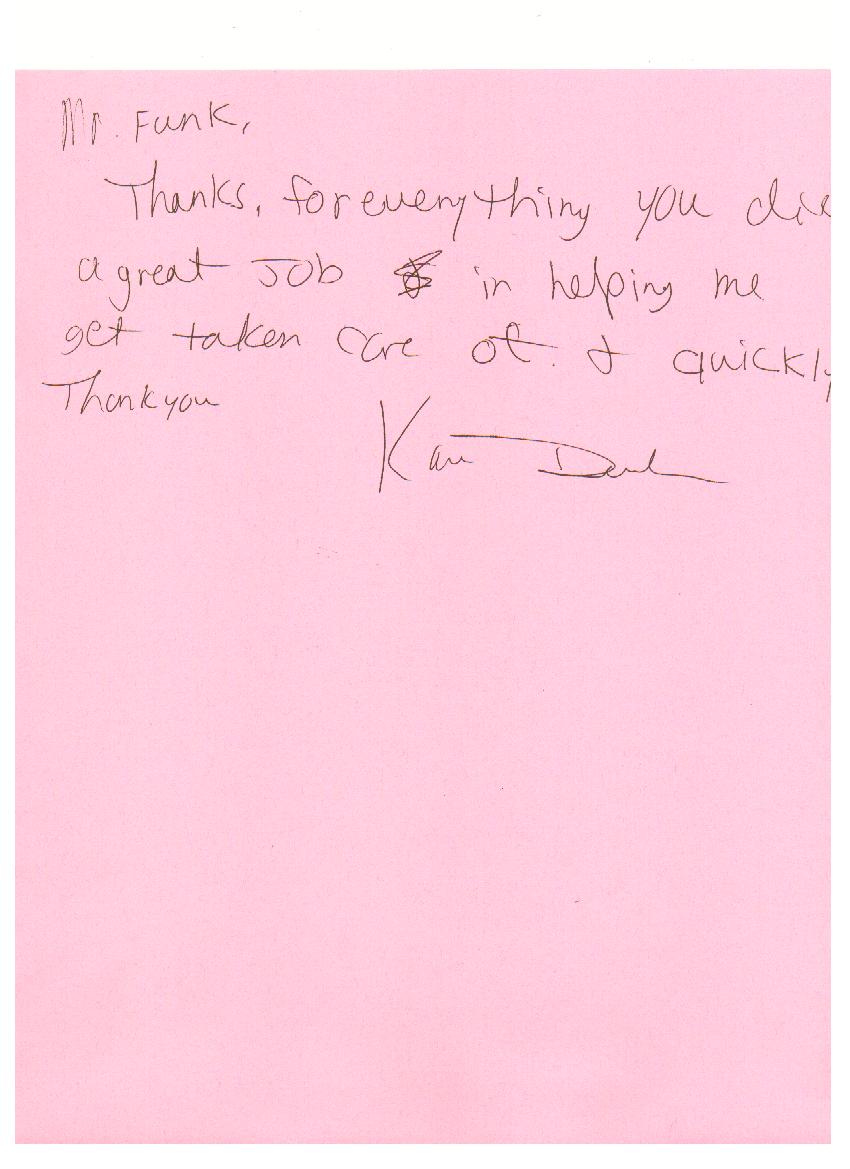 Mr. Funk,
Thanks, for everything you did
a great Job in helping me
get taken care of. & quickly
Thankyou